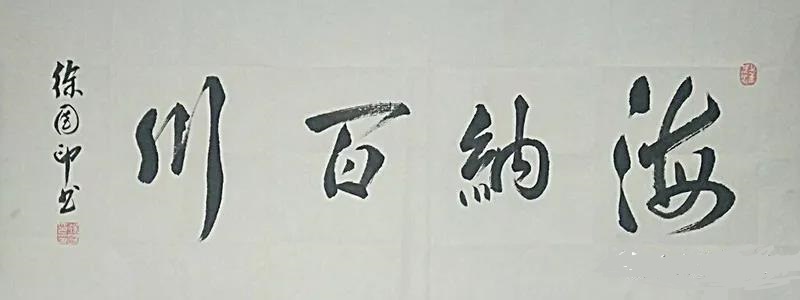 海納百川
徐國印书